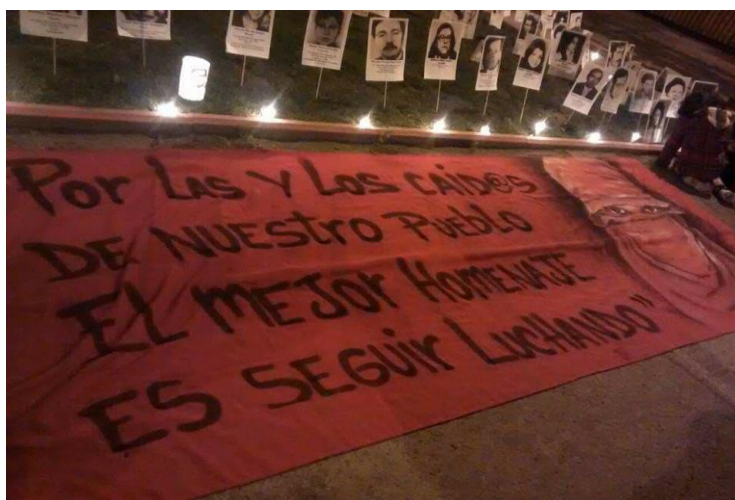 Por LAS Y LOS CAID@S
DE NUEStro PuEbLO
EL MEJOr HOMENAJE
ES SEGUIr LUCHANDO"